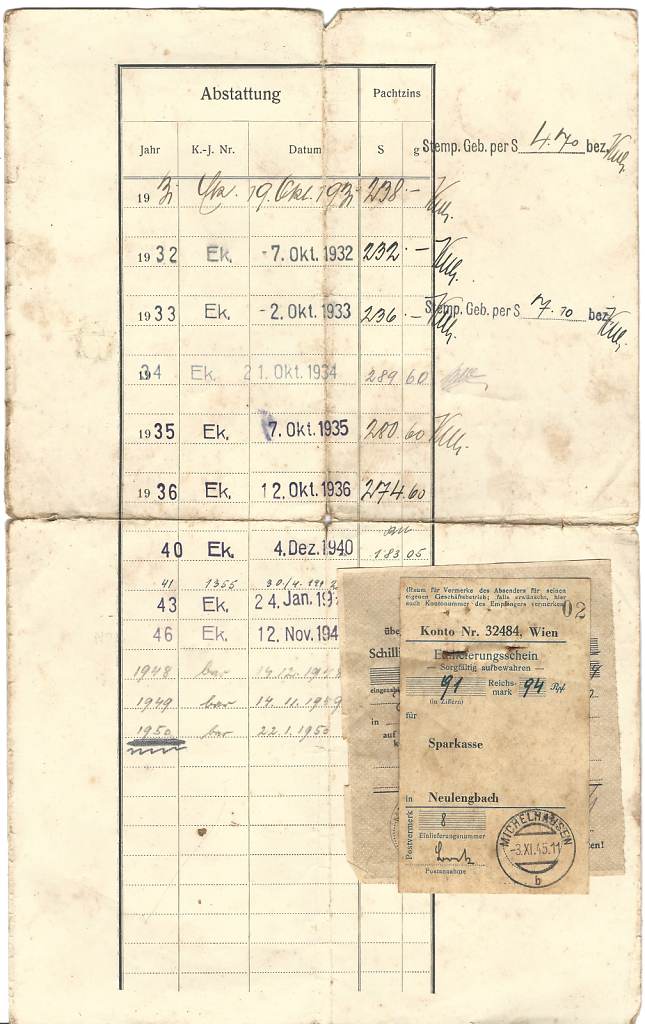 Abstattung Pachtzins
Jahr K.-J. Nr. Datum S g
Stemp. Geb. per S 4.70 bez.
1931 Ek. 19. Okt. 1931 238.-
1932 Ek. -7. Okt. 1932 232.-
1933 Ek. -2. Okt. 1933 236.-
Stemp. Geb. per S 7.70 bez.
1934 Ek. 21. Okt. 1934 289 60
1935 Ek. 7. Okt. 1935 280.60
1936 Ek. 12. Okt. 1936 274.60
40 Ek. 4. Dez. 1940 183 05
41 1355 30./4.
43 Ek. 24. Jan. 19
46 Ek. 12. Nov. 194
1948 bar 14.12.1948
1949 bar 14.11.1949
1950 bar 22.1.1950
übe
Schilli
eingezah
in
auf
k
en!
(Raum für Vermerke des Absenders für seinen
eigenen Geschäftsbetrieb; falls erwünscht, hier
auch Kontonummer des Empfängers vermerken)
02
Konto Nr. 32484, Wien
Einlieferungsschein
— Sorgfältig aufbewahren —
91 Reichs-
mark 94 Rpf
(in Ziffern)
für
Sparkasse
in Neulengbach
Postvermerk
8
Einlieferungsnummer
Postannahme
MICHELHAUSEN
-3.XI.45.11
b